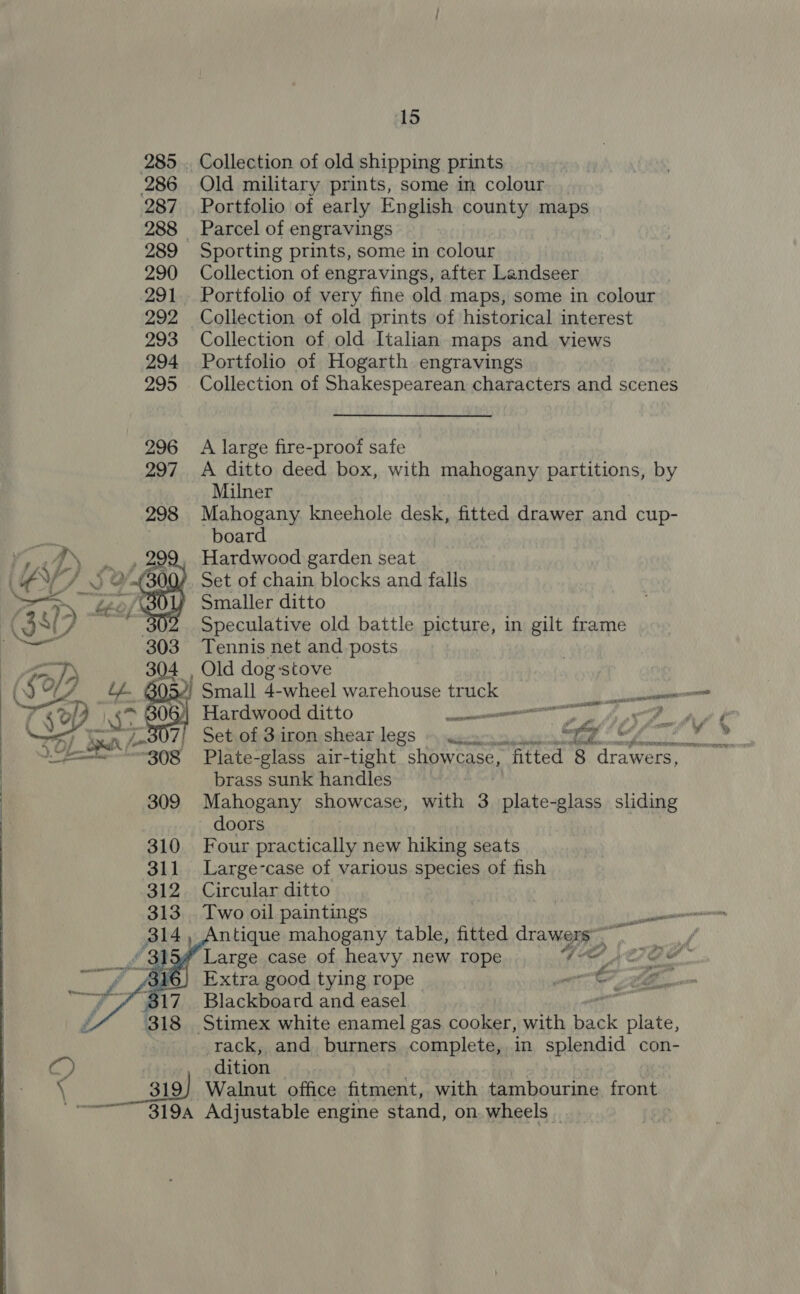 15
285 Collection of old shipping prints
286 Old military prints, some in colour
287 Portfolio of early English county maps
288 Parcel of engravings
289 Sporting prints, some in colour
290 Collection of engravings, after Landseer
291 Portfolio of very fine old maps, some in colour
292 Collection of old prints of historical interest
293 Collection of old Italian maps and views
294 Portfolio of Hogarth engravings
295 Collection of Shakespearean characters and scenes
296 A large fire-proof safe
297 A ditto deed box, with mahogany partitions, by
Milner
298 Mahogany kneehole desk, fitted drawer and cup-
board
299 Hardwood garden seat
300 Set of chain blocks and falls
301 Smaller ditto
302 Speculative old battle picture, in gilt frame
303 Tennis net and posts
304 Old dog stove
305 Small 4-wheel warehouse truck
306 Hardwood ditto
307 Set of 3 iron shear legs
308 Plate-glass air-tight showcase, fitted 8 drawers,
brass sunk handles
309 Mahogany showcase, with 3 plate-glass sliding
doors
310 Four practically new hiking seats
311 Large case of various species of fish
312 Circular ditto
313 Two oil paintings
314 Antique mahogany table, fitted drawers
315 Large case of heavy new rope
316 Extra good tying rope
317 Blackboard and easel
318 Stimex white enamel gas cooker, with back plate,
rack, and burners complete, in splendid con-
dition
319 Walnut office fitment, with tambourine front
319A Adjustable engine stand, on wheels